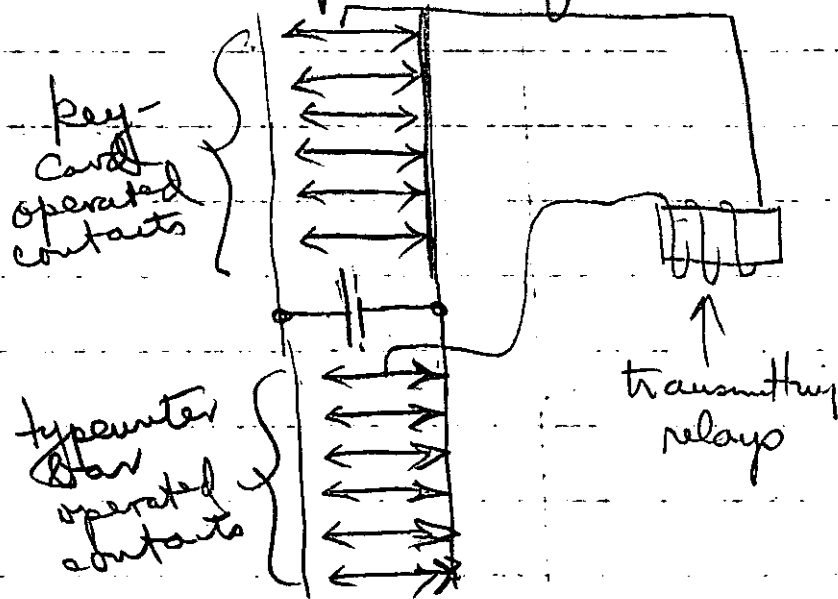 key-
card
operated
contacts
typewriter
bar
operated
contacts
transmitting
relays